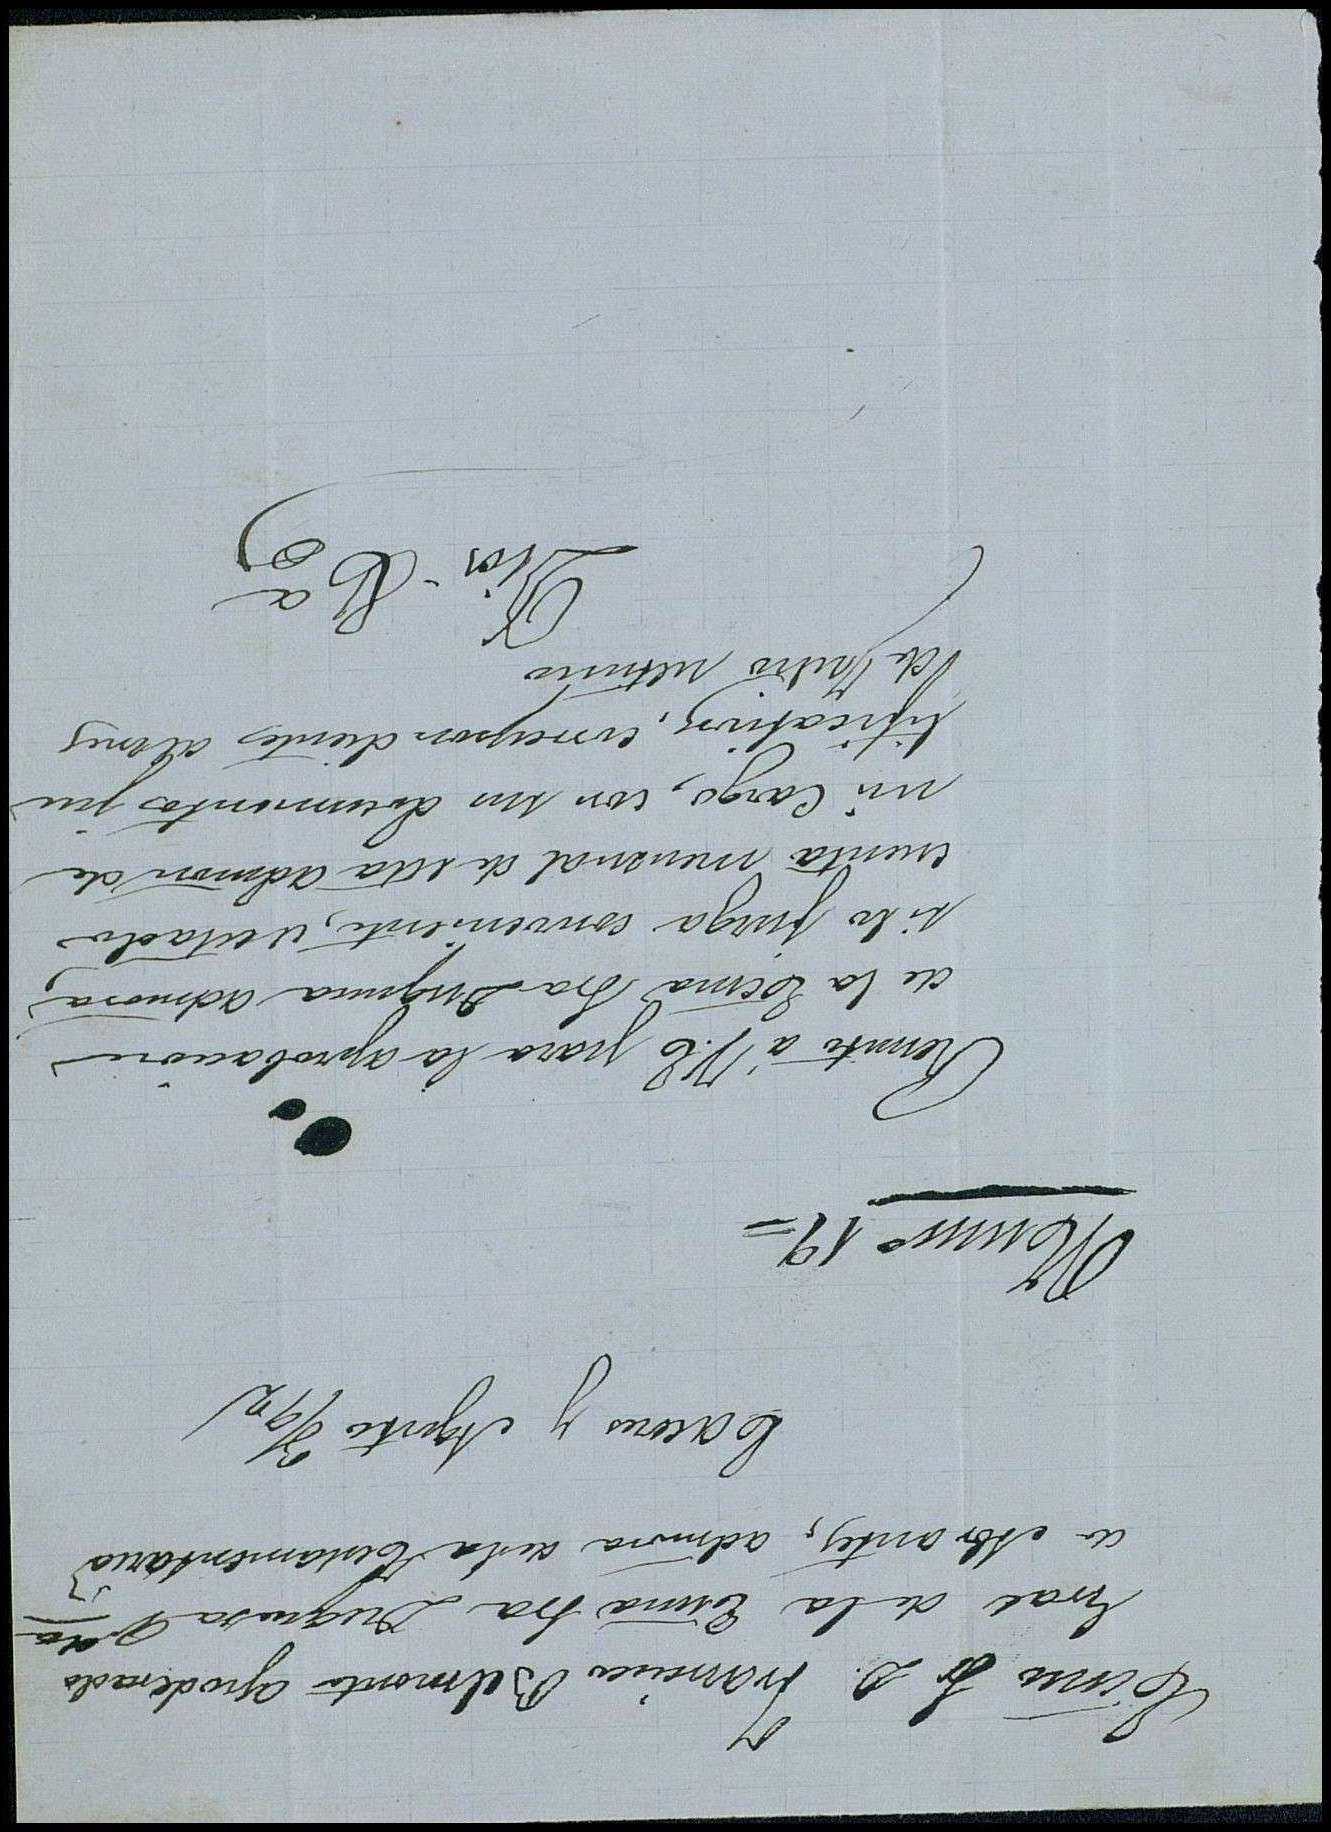 Excmo Sr D. Francisco Belmonte apoderado
Gral de la Excma Sra Duquesa Vda
de Abrantes, admora de la Testamentaria
Caceres y Agosto 3/92
Numro 19=
Remito a V.E. para la aprobacion
de la Excma Sra Duquesa admora,
si lo juzga conveniente, el estado
cuenta mensual de esta admon de
mi Cargo, con sus documentos jus
tificativos, correspondientes al mes
de Julio ultimo
Dios